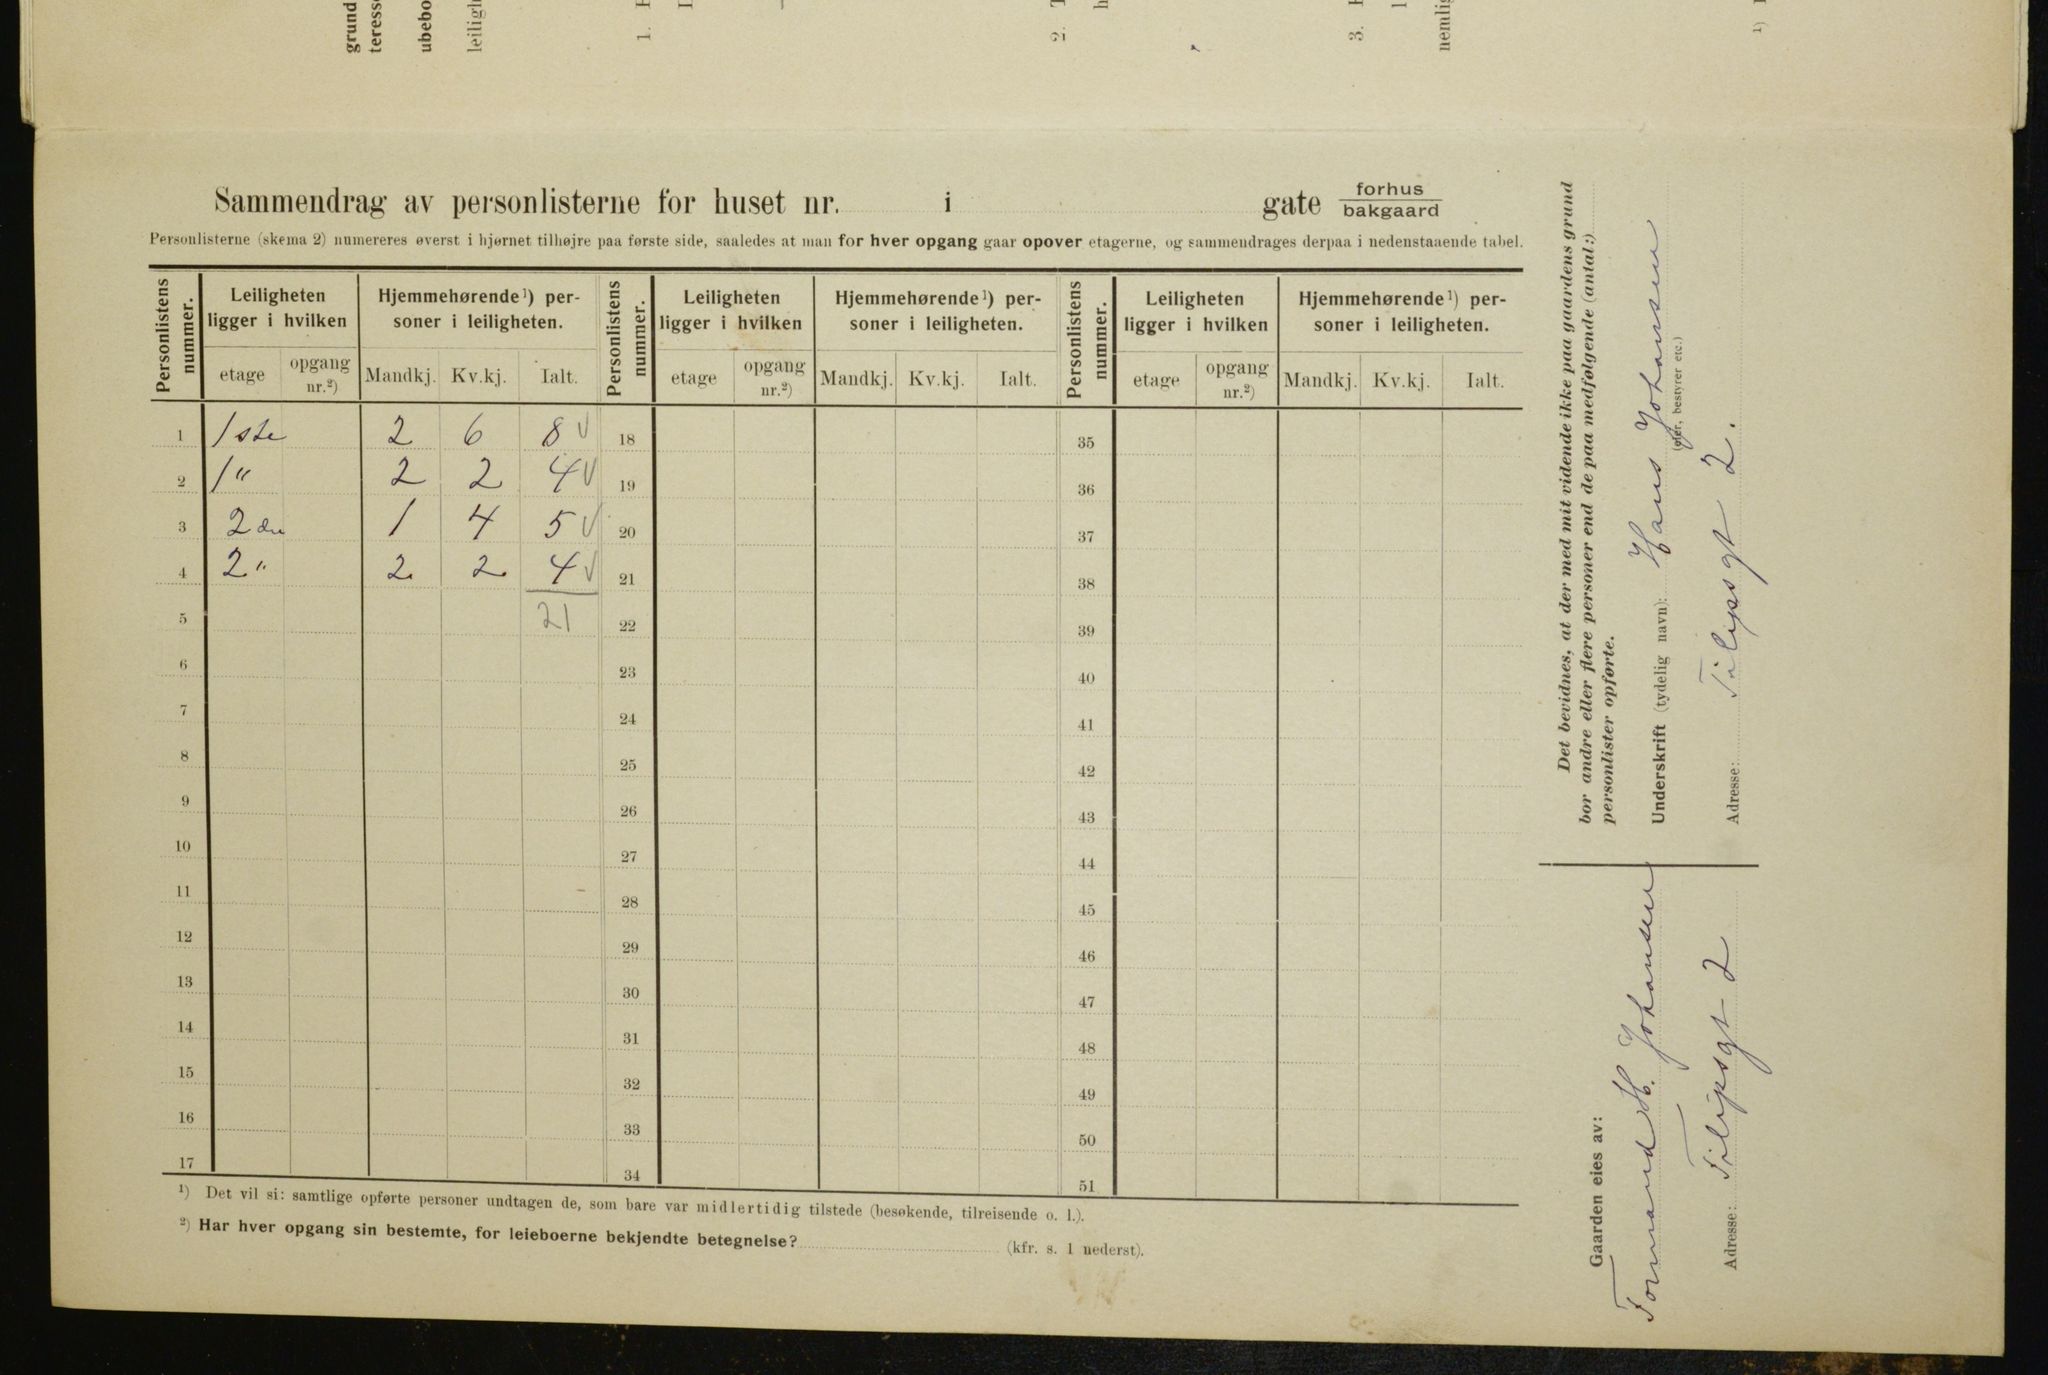 grund
teresse
ubebo
leiligh
1.
2.
3.
nemlig
1)
Sammendrag av personlisterne for huset nr. i gate forhus
bakgaard
Personlisterne (skema 2) numereres øverst i hjørnet tilhøjre paa første side, saaledes at man for hver opgang gaar opover etagerne, og sammendrages derpaa i nedenstaaende tabel.
Personlistens nummer. Leiligheten ligger i hvilken Hjemmehørende 1) personer i leiligheten. Personlistens nummer. Leiligheten ligger i hvilken Hjemmehørende 1) personer i leiligheten. Personlistens nummer. Leiligheten ligger i hvilken Hjemmehørende 1) personer i leiligheten.
etage opgang nr.2) Mandkj. Kv.kj. Ialt. etage opgang nr.2) Mandkj. Kv.kj. Ialt. etage opgang nr.2) Mandkj. Kv.kj. Ialt.
1 1ste 2 6 8 √ 18 35
2 1 " 2 2 4 √ 19 36
3 2den 1 4 5 √ 20 37
4 2 " 2 2 4 √ 21 38
5 21 22 39
6 23 40
7 24 41
8 25 42
9 26 43
10 27 44
11 28 45
12 29 46
13 30 47
14 31 48
15 32 49
16 33 50
17 34 51
1) Det vil si: samtlige opførte personer undtagen de, som bare var midlertidig tilstede (besøkende, tilreisende o. l.).
2) Har hver opgang sin bestemte, for leieboerne bekjendte betegnelse? (kfr. s. 1 nederst).
Det bevidnes, at der med mit vidende ikke paa gaardens grund
bor andre eller flere personer end de paa medfølgende (antal:)
personlister opførte.
Underskrift (tydelig navn): Hans Johansen
(eier, bestyrer etc.)
Adresse: Filipsgt 2.
Gaarden eies av:
Formand H. Johansen
Adresse: Filipsgt 2